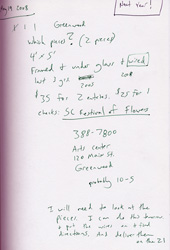 Aug 19 2008
Next Year!
Greenwood
Which pieces? (2 pieces)
4' x 5'
Framed & under glass. & wired
last 3 yrs. 2005 2008
$35 for 2 entries. $25 for 1
checks: SC Festival of Flowers
388-7800
Arts Center
120 Main St.
Greenwood
probably 10-5
I will need to look at the
pieces. I can do this tomorrow
& put the wires on & find
directions. And deliver them
on the 21